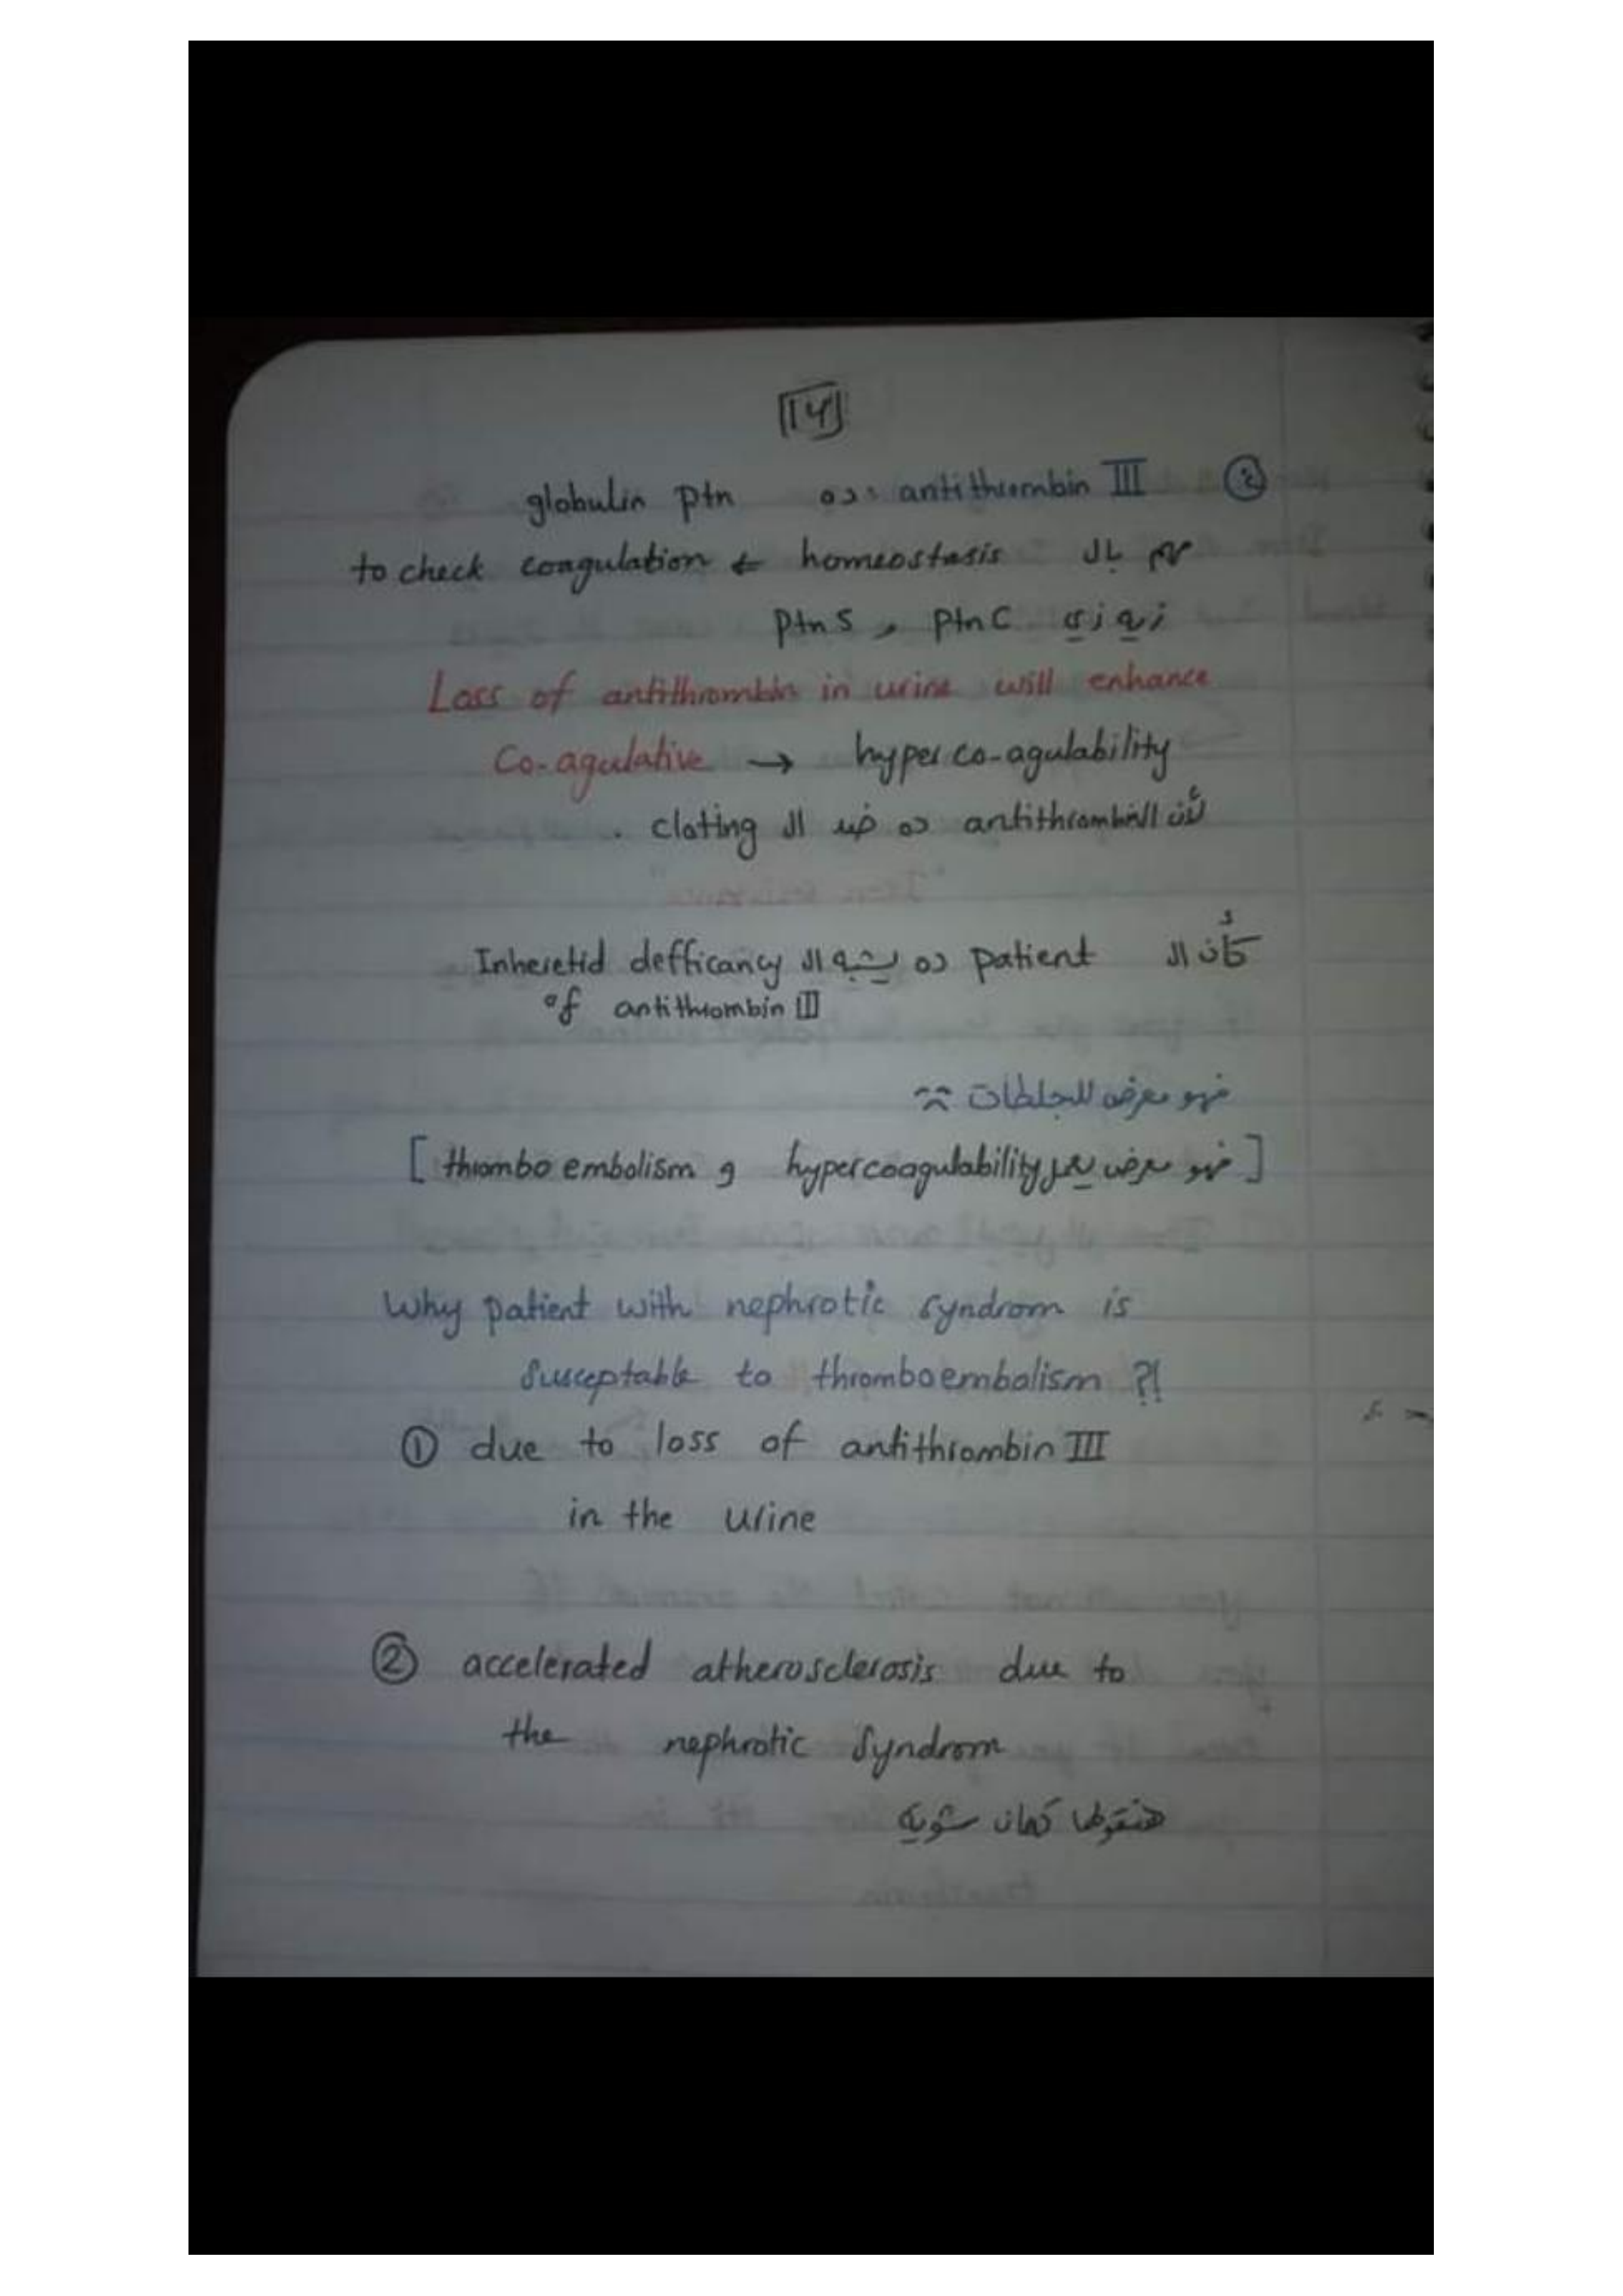 14
④ antithrombin III ده globulin ptn
مهم بال homeostasis ← to check coagulation
زيه زي ptn C و ptn S
Loss of antithrombin in urine will enhance
Co-agulative → hyper co-agulability
لأن ال antithrombin ده ضد ال cloting .
كأن ال patient ده يشبه ال Inheretid defficancy
of antithrombin III
فهو معرض للجلطات
[ فهو معرض يعمل hypercoagulability و thrombo embolism ]
Why patient with nephrotic syndrom is
susceptable to thromboembolism ?!
① due to loss of antithrombin III
in the urine
② accelerated atherosclerosis due to
the nephrotic syndrom
هنقولها كمان شويه